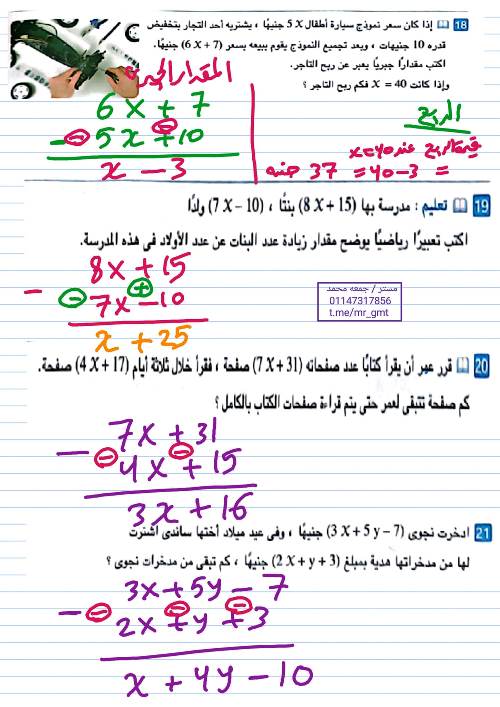 18 إذا كان سعر نموذج سيارة أطفال 5 X جنيهًا ، يشتريه أحد التجار بتخفيض
قدره 10 جنيهات ، وبعد تجميع النموذج يقوم ببيعه بسعر (6 X + 7) جنيهًا.
اكتب مقدارًا جبريًا يعبر عن ربح التاجر.
وإذا كانت X = 40 فكم ربح التاجر ؟
المقدار الجبرى
6x + 7
- 5x + 10
x - 3
الربح
قيمة الربح عند x=40
= 40-3 = 37 جنيه
19 تعليم : مدرسة بها (8 X + 15) بنتًا ، (7 X - 10) ولدًا
اكتب تعبيرًا رياضيًا يوضح مقدار زيادة عدد البنات عن عدد الأولاد فى هذه المدرسة.
8x + 15
- 7x - 10
x + 25
مستر / جمعه محمد
01147317856
t.me/mr_gmt
20 قرر عمر أن يقرأ كتابًا عدد صفحاته (7 X + 31) صفحة ، فقرأ خلال ثلاثة أيام (4 X + 17) صفحة.
كم صفحة تتبقى لعمر حتى يتم قراءة صفحات الكتاب بالكامل ؟
7x + 31
- 4x + 15
3x + 16
21 ادخرت نجوى (3 X + 5 y - 7) جنيهًا ، وفى عيد ميلاد أختها ساندى اشترت
لها من مدخراتها هدية بمبلغ (2 X + y + 3) جنيهًا ، كم تبقى من مدخرات نجوى ؟
3x + 5y - 7
- 2x + y + 3
x + 4y - 10